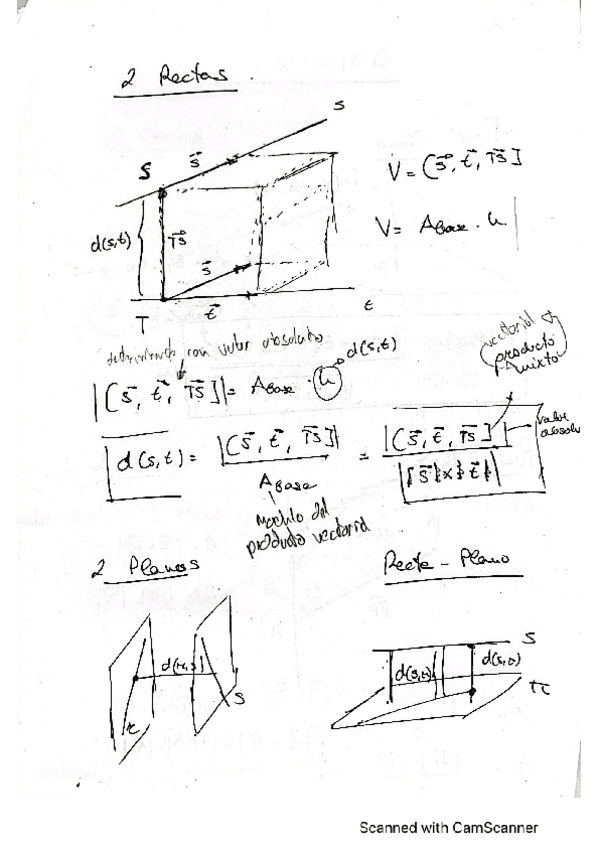 2 Rectas.
s
S
s⃗
V = [s⃗, t⃗, TS⃗]
d(s,t)
TS⃗
V = A Base · h
s⃗
T
t⃗
t
determinante con valor absoluto
d(s,t)
vectorial
(producto mixto)
|[s⃗, t⃗, TS⃗]| = A Base · h
d(s,t) = |[s⃗, t⃗, TS⃗]| / A Base = |[s⃗, t⃗, TS⃗]| / |s⃗ x t⃗|
valor absolu
modulo del
producto vectorial
2 Planos
Recta - Plano
s
d(s,π)
d(s,π)
π
π
s
Scanned with CamScanner